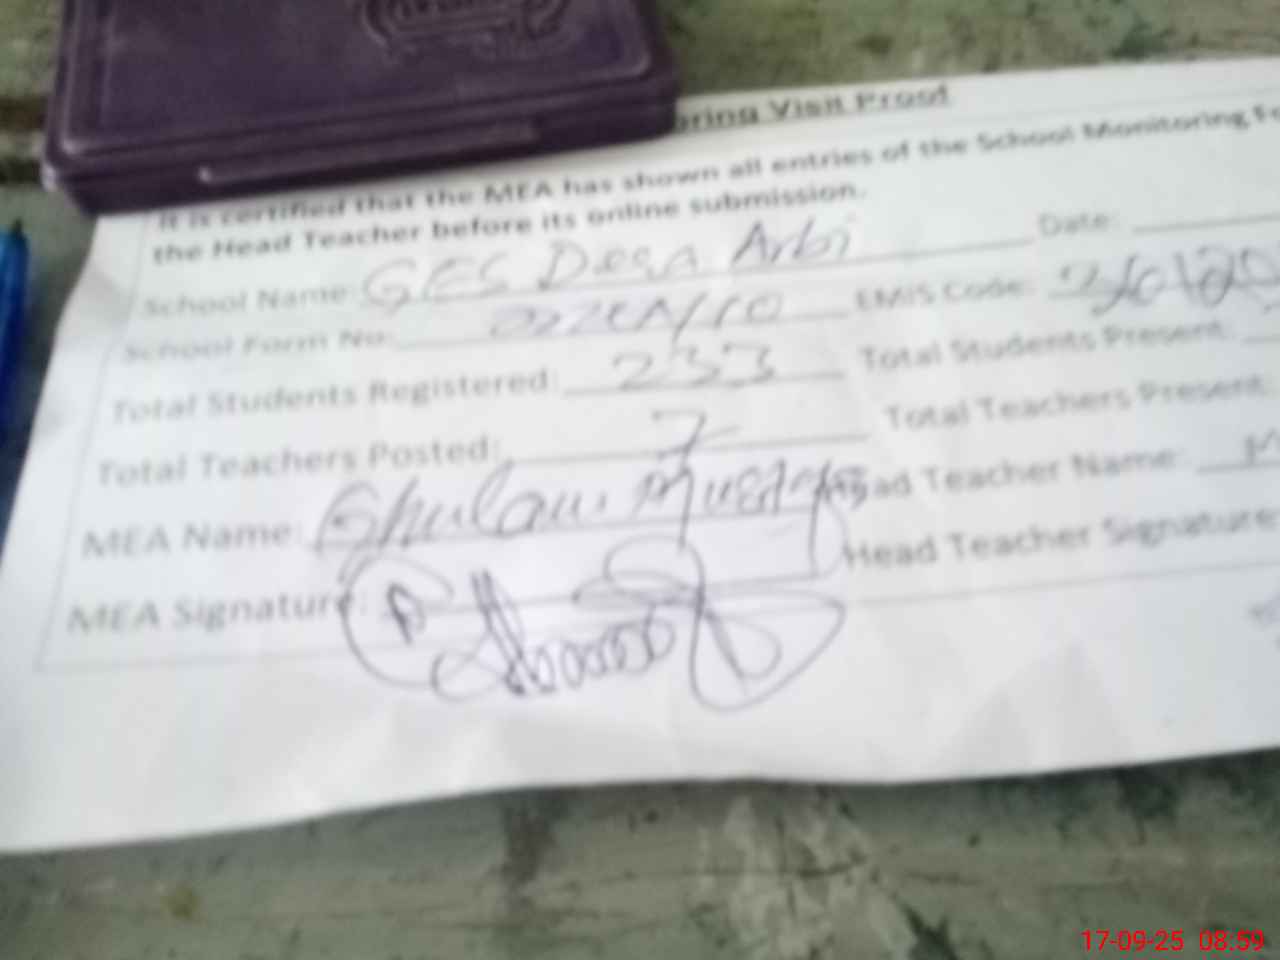 oring Visit Proof
It is certified that the MEA has shown all entries of the School Monitoring
the Head Teacher before its online submission.
School Name: GES Dera Arbi Date:
School Form No: EMIS Code:
Total Students Registered: 233 Total Students Present:
Total Teachers Posted: 7 Total Teachers Present:
MEA Name: Ghulam Mustafa Head Teacher Name:
MEA Signature: Head Teacher Signature:
17-09-25 08:59